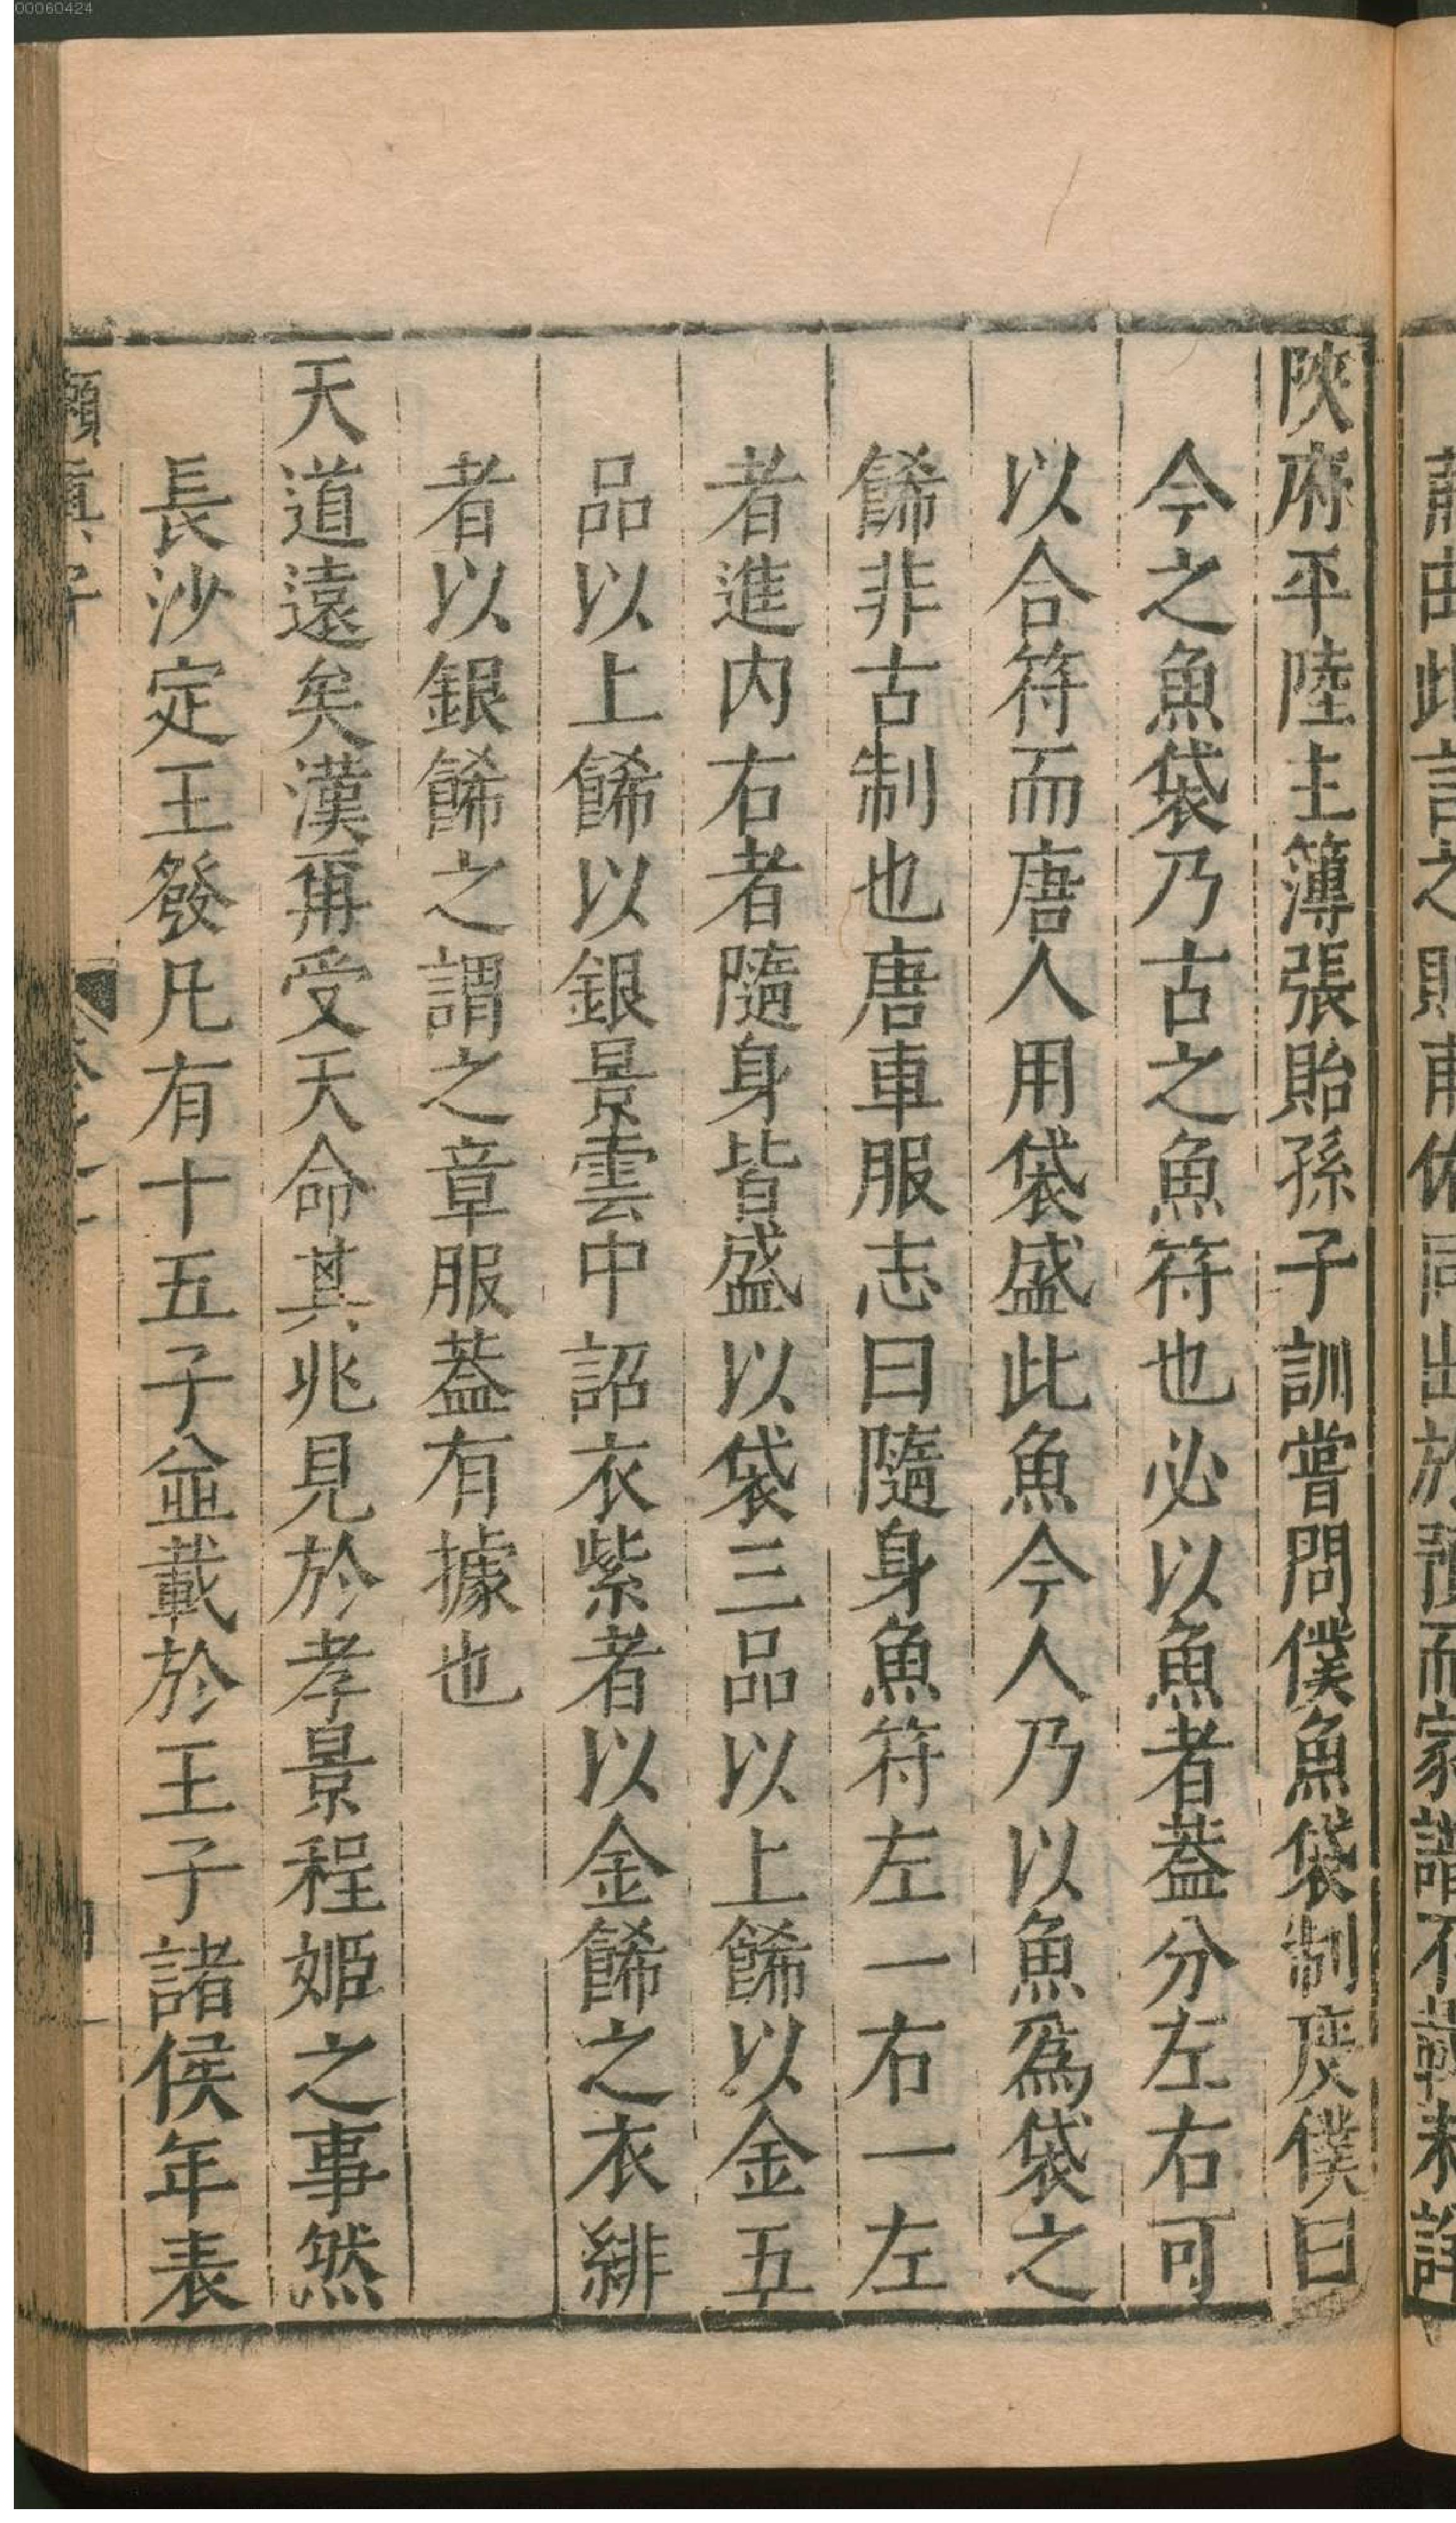 陜府平陸主簿張貽孫子訓嘗問僕魚袋制度僕曰
今之魚袋乃古之魚符也必以魚者葢分左右可
以合符而唐人用袋盛此魚今人乃以魚爲袋之
餙非古制也唐車服志曰隨身魚符左一右一左
者進内右者隨身皆盛以袋三品以上餙以金五
品以上餙以銀景雲中詔衣紫者以金餙之衣緋
者以銀餙之謂之章服葢有據也
天道遠矣漢再受天命其兆見於孝景程姬之事然
長沙定王發凡有十五子並載於王子諸侯年表
00060424